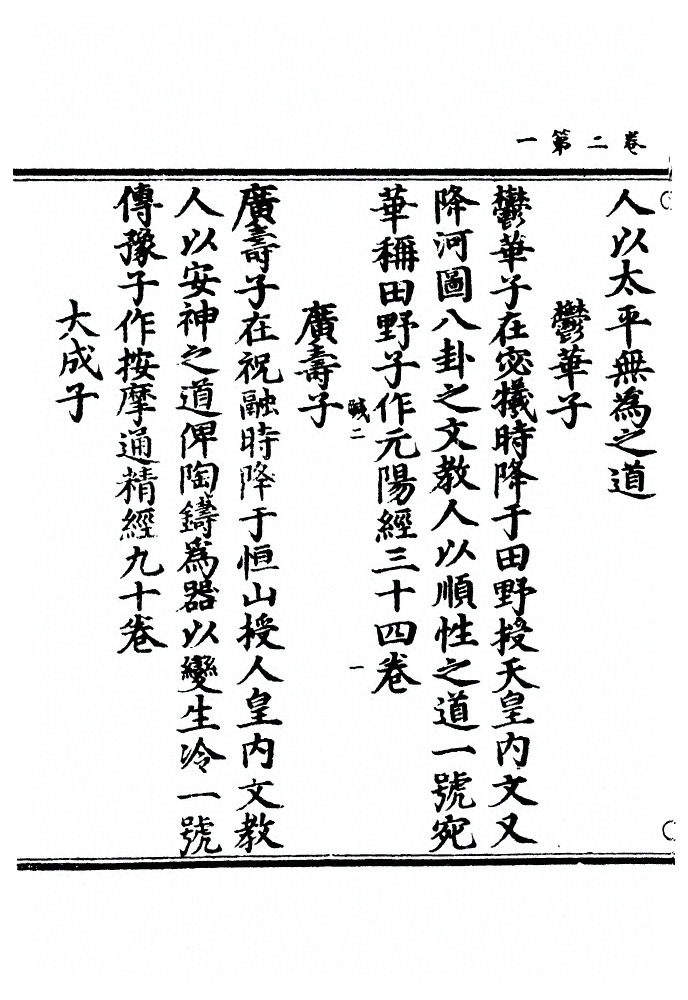 卷二第一
人以太平無為之道
鬱華子
鬱華子在宓犧時降于田野授天皇内文又
降河圖八卦之文教人以順性之道一號宛
華稱田野子作元陽經三十四卷
醎二 一
廣壽子
廣壽子在祝融時降于恒山授人皇内文教
人以安神之道俾陶鑄爲器以變生冷一號
傳豫子作按摩通精經九十卷
大成子